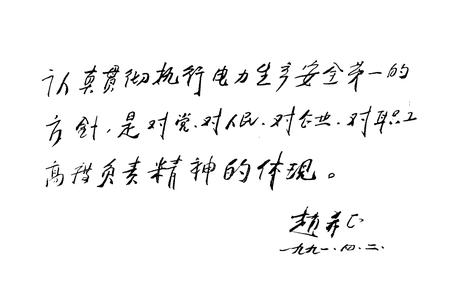 认真贯彻执行电力生产安全第一的
方针，是对党、对人民、对企业、对职工
高度负责精神的体现。
赵希正
一九九一.四.二.